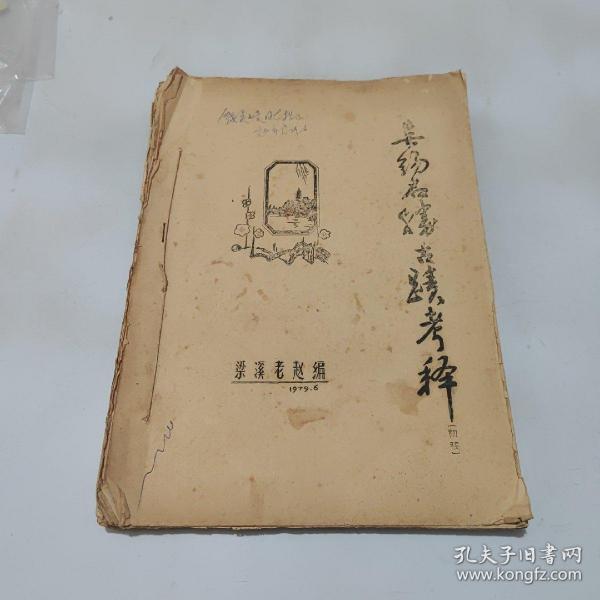 无锡名胜古蹟考释
（初稿）
梁溪老赵编
1979.6
孔夫子旧书网
www.kongfz.com